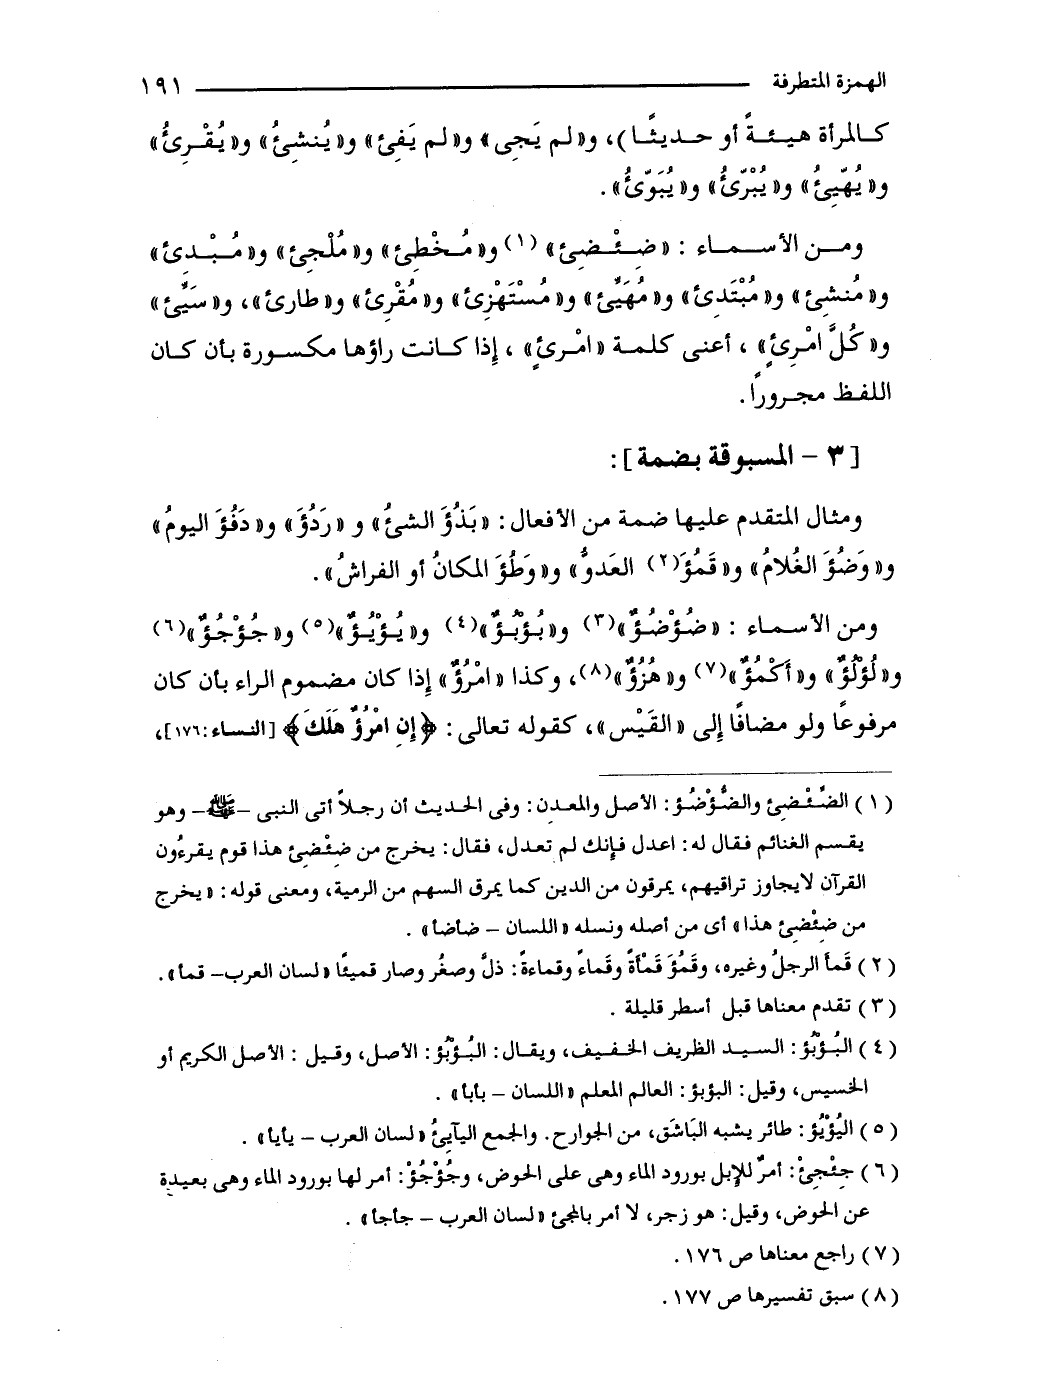 الهمزة المتطرفة ١٩١
كالمرأة هيئةً أو حديثًا)، و«لم يَجِئ» و«لم يَفِئ» و«يُنشِئُ» و«يُقْرِئُ»
و«يُهَيِّئُ» و«يُبْرِّئُ» و«يُبَوِّئُ».
ومن الأسماء : «ضِئْضِئ» (١) و«مُخْطِئ» و«مُلْجِئ» و«مُبْدِئ»
و«مُنشِئ» و«مُبْتَدِئ» و«مُهَيِّئ» و«مُسْتَهْزِئ» و«مُقْرِئ» و«طارِئ»، و«سَيِّئ»
و«كُلِّ امْرِئٍ» ، أعنى كلمة «امْرِئٍ» ، إذا كانت راؤها مكسورة بأن كان
اللفظ مجروراً.
[٣ - المسبوقة بضمة] :
ومثال المتقدم عليها ضمة من الأفعال : «بَذُؤَ الشئُ» و «رَدُؤَ» و«دَفُؤَ اليومُ»
و«وَضُؤَ الغُلامُ» و«قَمُؤَ(٢) العَدوُّ» و«وَطُؤَ المكانُ أو الفراشُ».
ومن الأسماء : «ضُؤْضُؤٌ»(٣) و«بُؤْبُؤٌ»(٤) و«يُؤْيُؤٌ»(٥) و«جُؤْجُؤٌ»(٦)
و«لُؤْلُؤٌ» و«أَكْمُؤٌ»(٧) و«هُزُؤٌ»(٨)، وكذا «امْرُؤٌ» إذا كان مضموم الراء بأن كان
مرفوعًا ولو مضافًا إلى «القَيْس»، كقوله تعالى : ﴿إِنِ امْرُؤٌ هَلَكَ﴾ [النساء:١٧٦]،
(١) الضِّئْضِئ والضُّؤْضُؤ : الأصل والمعدن : وفى الحديث أن رجلاً أتى النبى -ﷺ- وهو
يقسم الغنائم فقال له : اعدل فإنك لم تعدل، فقال : يخرج من ضِئْضِئ هذا قوم يقرءُون
القرآن لايجاوز تراقيهم، يمرقون من الدين كما يمرق السهم من الرمية، ومعنى قوله : «يخرج
من ضِئْضِئ هذا» أى من أصله ونسله «اللسان - ضأضأ» .
(٢) قَمأ الرجلُ وغيره، وقَمُؤَ قَمْأَةً وقَماءً وقماءةً : ذلَّ وصغُر وصار قميئًا «لسان العرب- قمأ».
(٣) تقدم معناها قبل أسطر قليلة .
(٤) البُؤْبُؤ : السيد الظريف الخفيف، ويقال : البُؤْبُؤ : الأصل، وقيل : الأصل الكريم أو
الخسيس، وقيل : البؤبؤ : العالم المعلم «اللسان - بأبأ» .
(٥) اليُؤْيُؤ : طائر يشبه البَاشَق، من الجوارح. والجمع اليآيئُ «لسان العرب - يأيأ» .
(٦) جِئْجِئْ : أمرٌ للإبل بورود الماء وهى على الحوض، وجُؤْجُؤْ : أمر لها بورود الماء وهى بعيدة
عن الحوض، وقيل : هو زجر، لا أمر بالمجئ «لسان العرب - جأجأ» .
(٧) راجع معناها ص ١٧٦ .
(٨) سبق تفسيرها ص ١٧٧ .